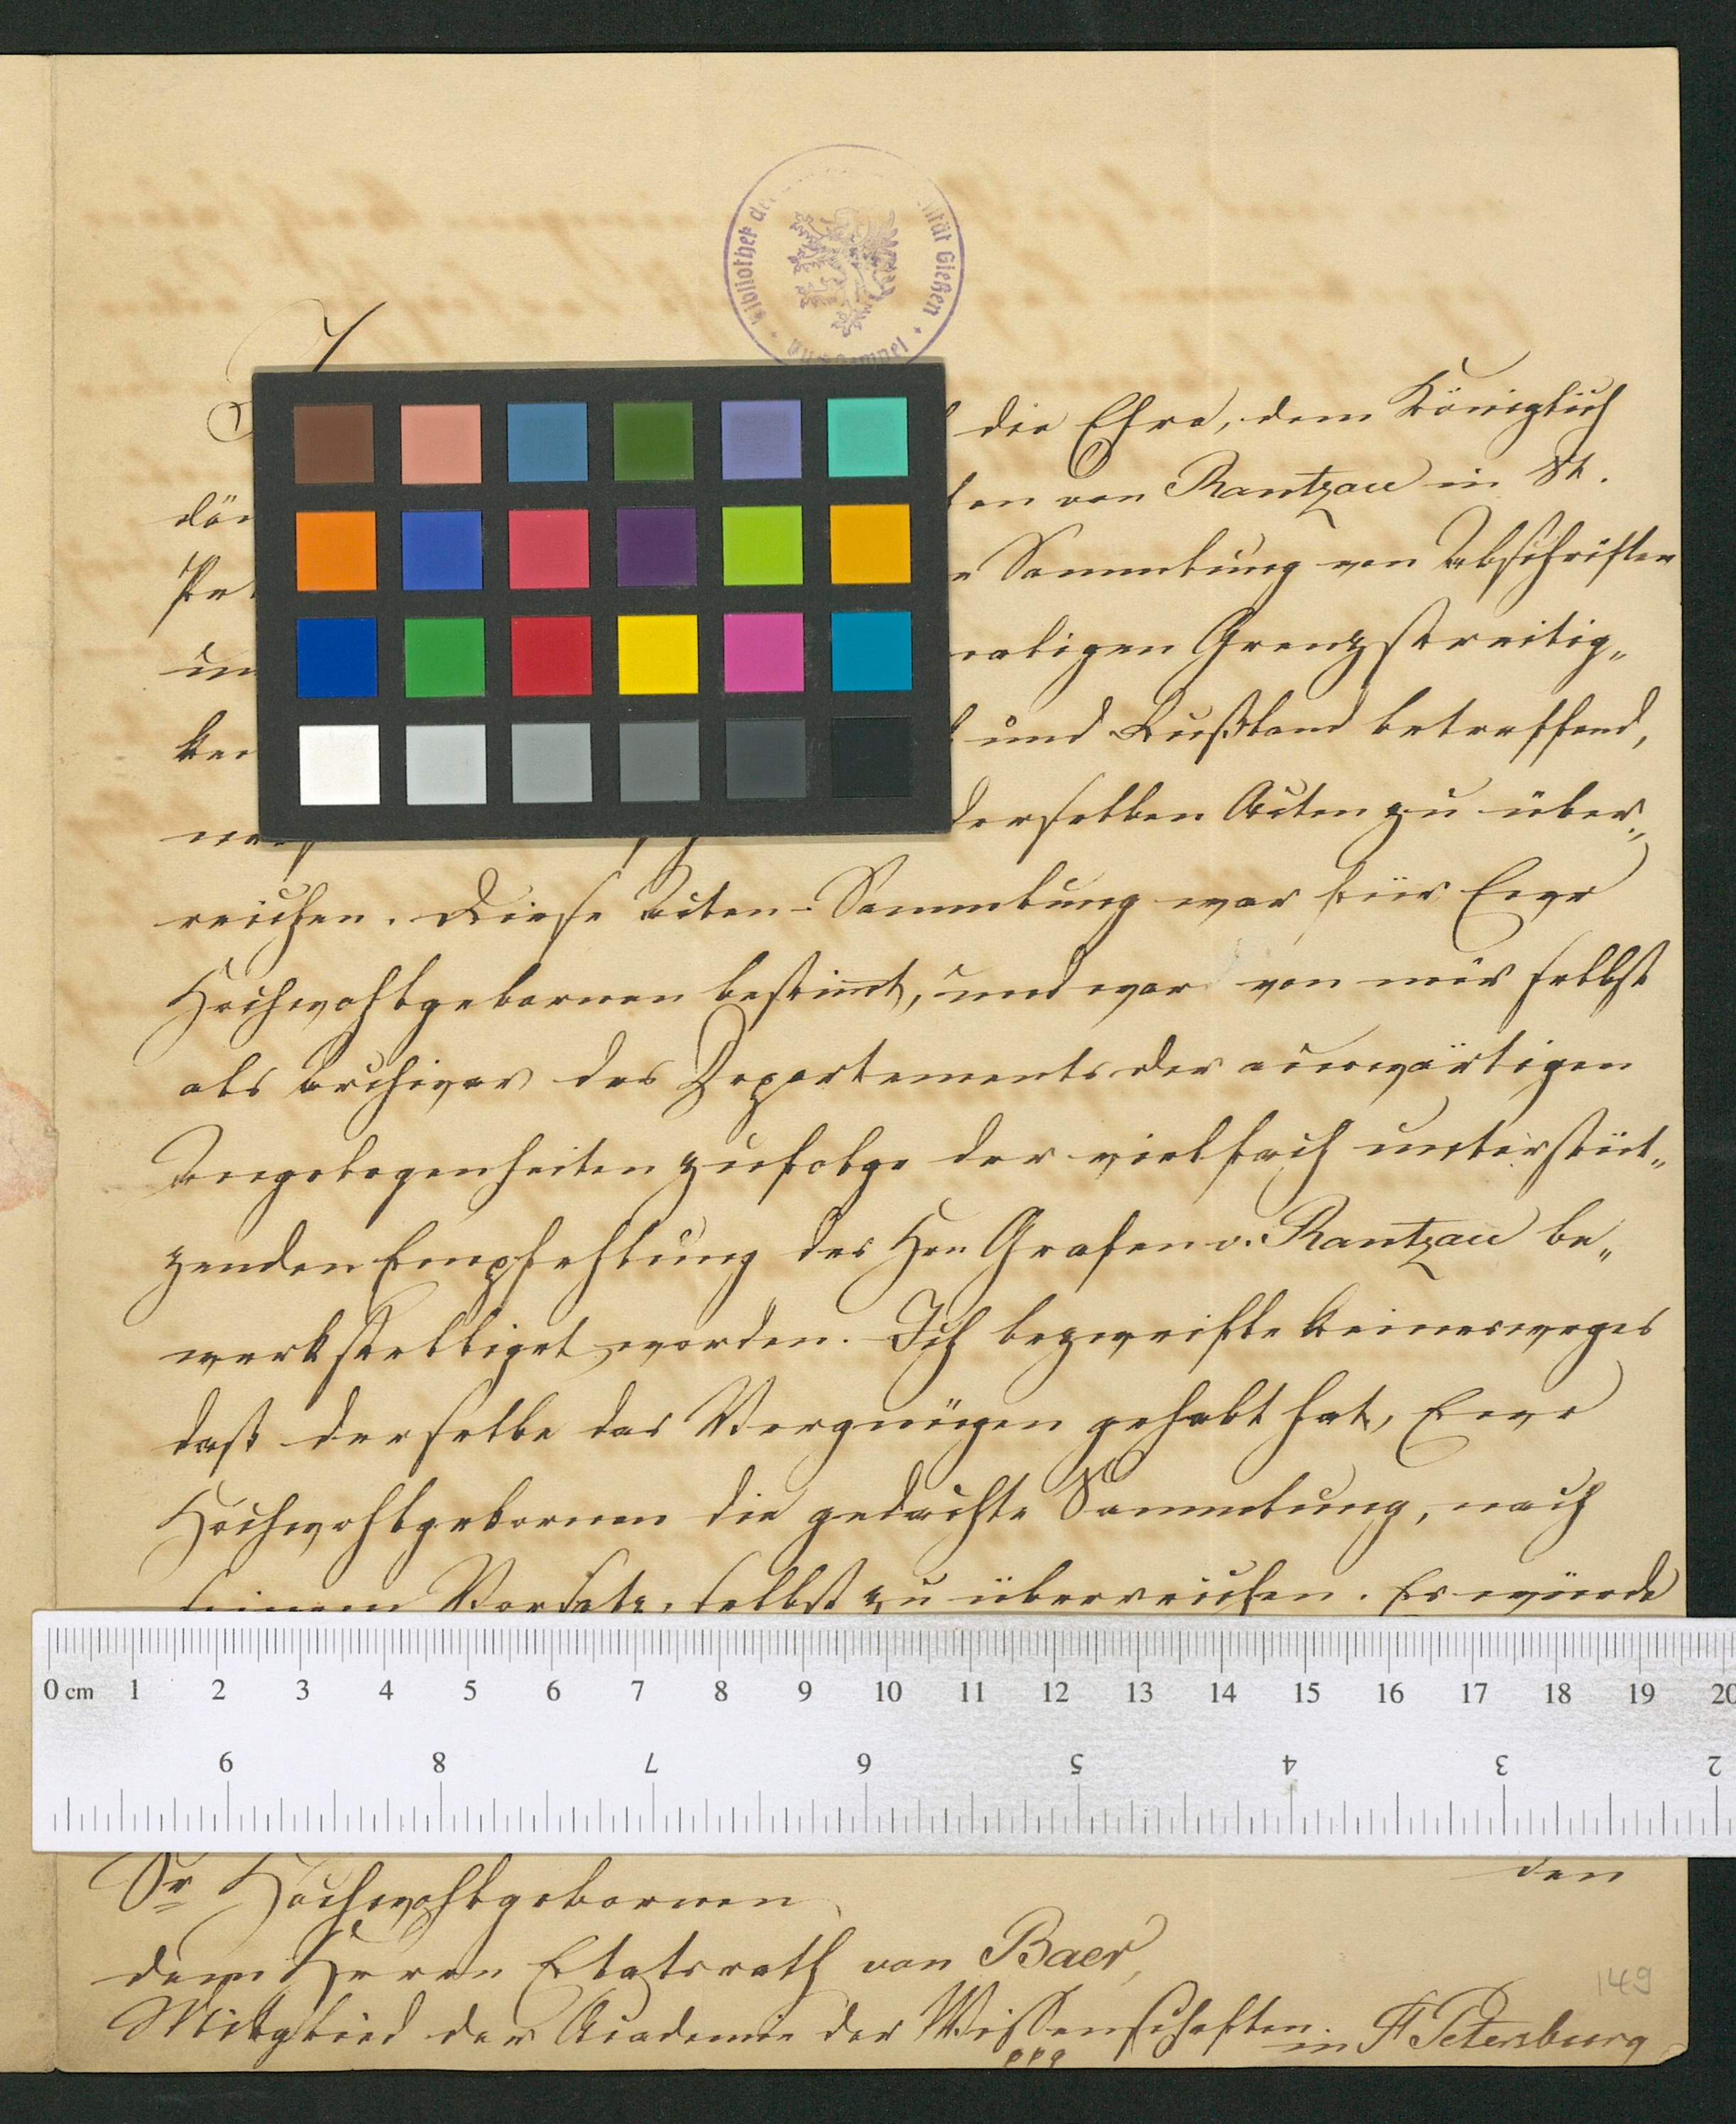 Bibliothek de ität Gießen
die Ehre, dem Königlich
dän ten von Rantzau in St.
Pet Sammlung von Abschriften
un maligen Grenzstreitig„
kei und Rußland betreffend,
derselben Acten zu über„
reichen. Diese Acten-Sammlung war für Ewr
Hochwohlgebornen bestimt, und war von mir selbst
als Archivar des Departements der auswärtigen
Angelegenheiten zufolge der vielfach unterstüt„
zenden Empfehlung des Hrn Grafen v. Rantzau be„
werkstelliget worden. Ich bezweifle keinesweges
daß derselbe das Vergnügen gehabt hat, Ewr
Hochwohlgebornen die gedachte Sammlung, nach
seinem Vorsatz, selbst zu überreichen. Es würde
0 cm 1 2 3 4 5 6 7 8 9 10 11 12 13 14 15 16 17 18 19 20
9 8 7 6 5 4 3 2
den
Sr Hochwohlgebornen
dem Herrn Etatsrath von Baer,
149
Mitglied der Academie der Wissenschaften
ppp in St Petersburg